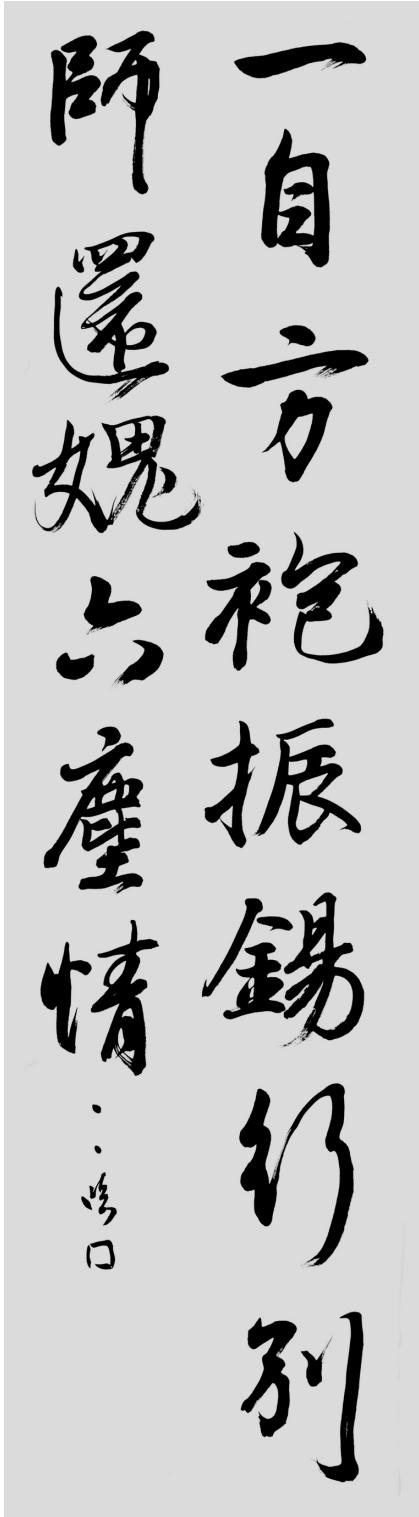 一自方袍振錫行別
師還媿六塵情